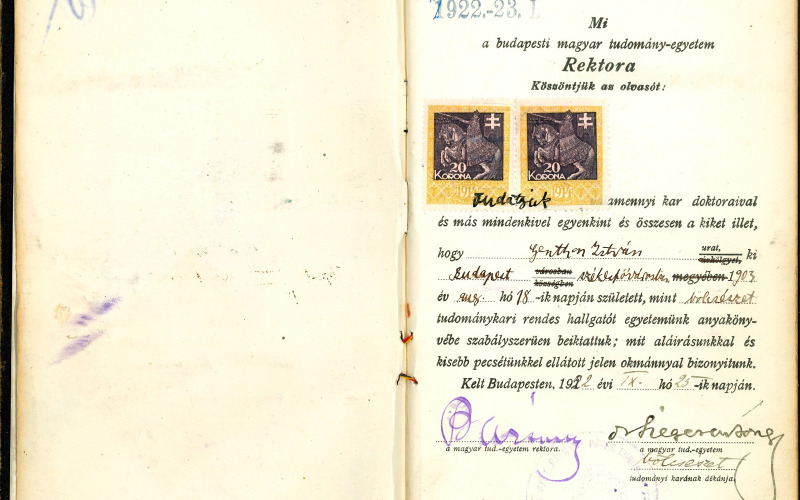 1922.-23. I.
Mi
a budapesti magyar tudomány-egyetem
Rektora
Köszöntjük az olvasót:
20 KORONA 1914
20 KORONA 1914
Tudatjuk amennyi kar doktoraival
és más mindenkivel egyenkint és összesen a kiket illet,
hogy Genthon István urat, úrhölgyet, ki
Budapest városban községben székesfővárosban megyében 1903
év aug. hó 18-ik napján született, mint bölcsészet
tudománykari rendes hallgatót egyetemünk anyaköny-
vébe szabályszerüen beiktattuk; mit aláírásunkkal és
kisebb pecsétünkkel ellátott jelen okmánnyal bizonyitunk.
Kelt Budapesten, 1922 évi IX. hó 25-ik napján.
a magyar tud.-egyetem rektora.
a magyar tud.-egyetem
bölcsészet
tudományi karának dékánja.